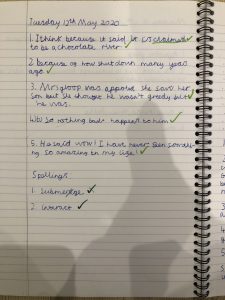 Tuesday 12th May 2020
1. I think because it said it was claimed
to be a chocolate river
2. because of how shut down many years
ago
3. Mrs gloop was appos she saws her
Son but she thought he wasn't greedy but
he was.
4. so nothing bad happens to him
5. He said wow! I have never seen somethi
ng so amazing in my life!
Spellings:
1. Submerge
2. interact